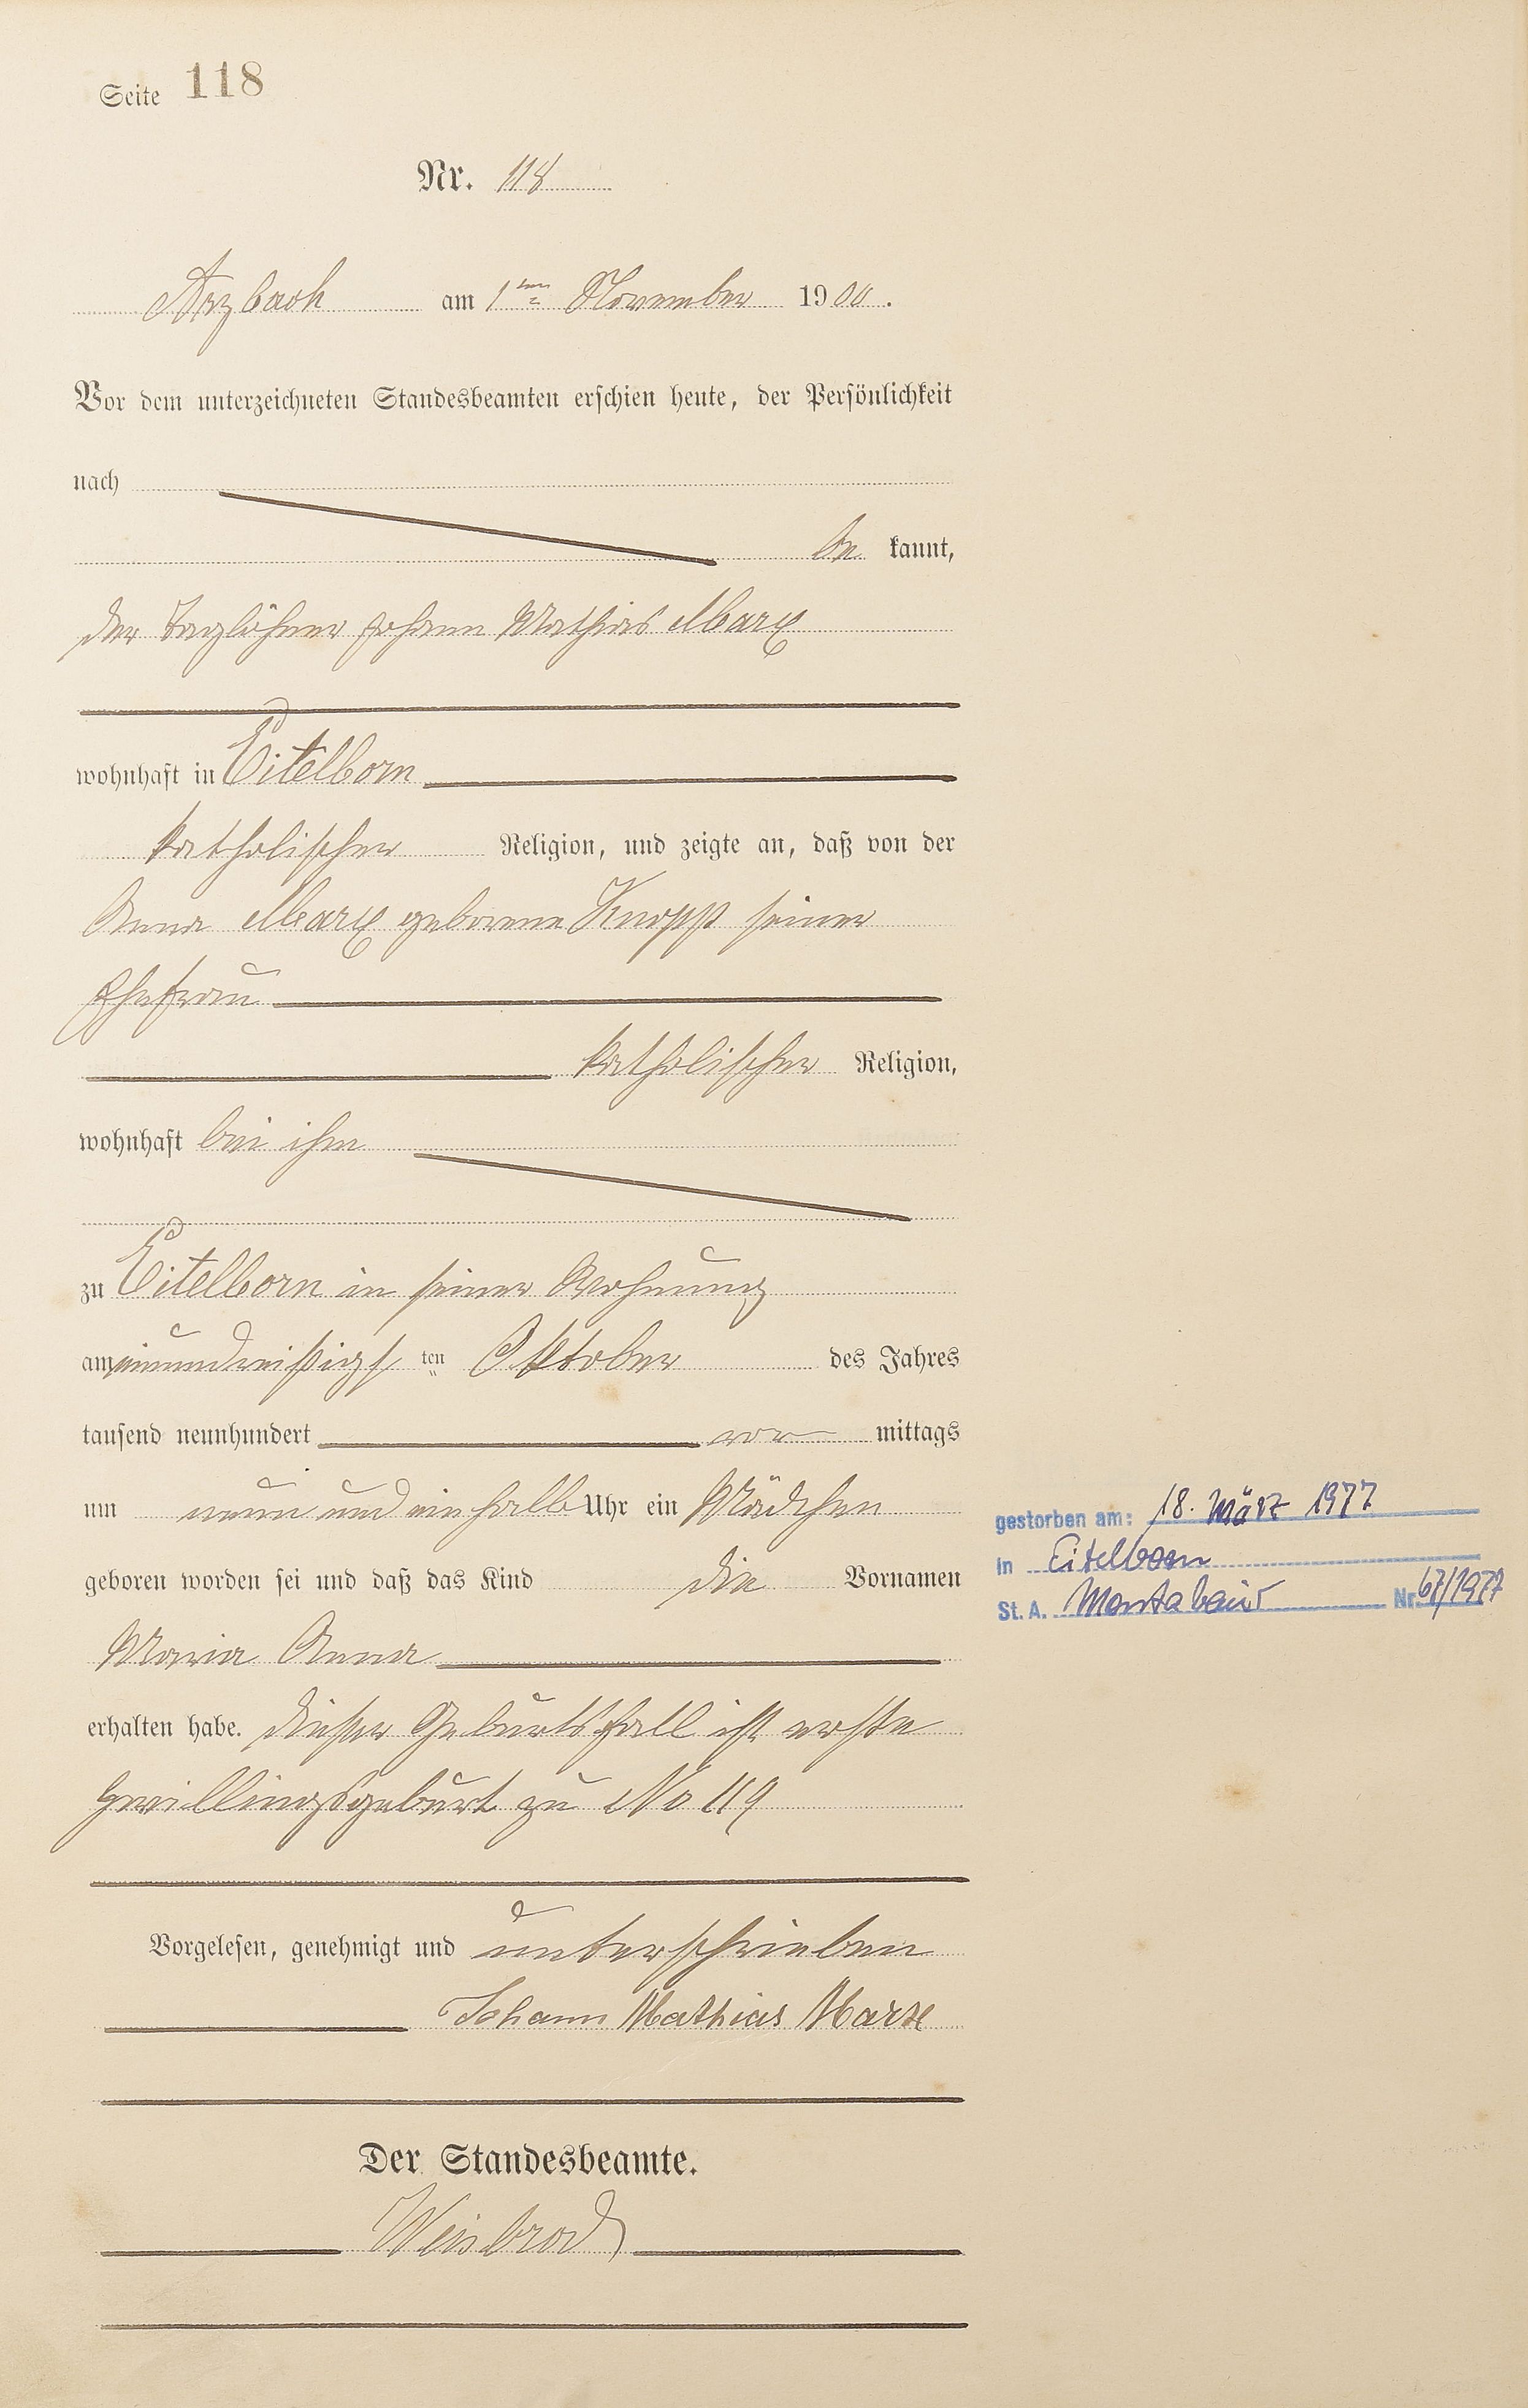 Seite 118
Nr. 118
Arzbach am 1ten November 1900.
Vor dem unterzeichneten Standesbeamten erschien heute, der Persönlichkeit
nach
be kannt,
der Taglöhner Johann Mathias Marx
wohnhaft in Eitelborn
katholischer Religion, und zeigte an, daß von der
Anna Marx geborene Knopp seiner
Ehefrau
katholischer Religion,
wohnhaft bei ihm
zu Eitelborn in seiner Wohnung
am einunddreißigs ten Oktober des Jahres
tausend neunhundert vor mittags
um neun und ein halb Uhr ein Mädchen
geboren worden sei und daß das Kind die Vornamen
Maria Anna
erhalten habe. Dieser Geburtsfall ist erste
Zwillingsgeburt zu No 119
Vorgelesen, genehmigt und unterschrieben
Johann Mathias Marx
Der Standesbeamte.
Weisbrod
gestorben am: 18. März 1977
in Eitelborn
St. A. Montabaur Nr. 67/1977